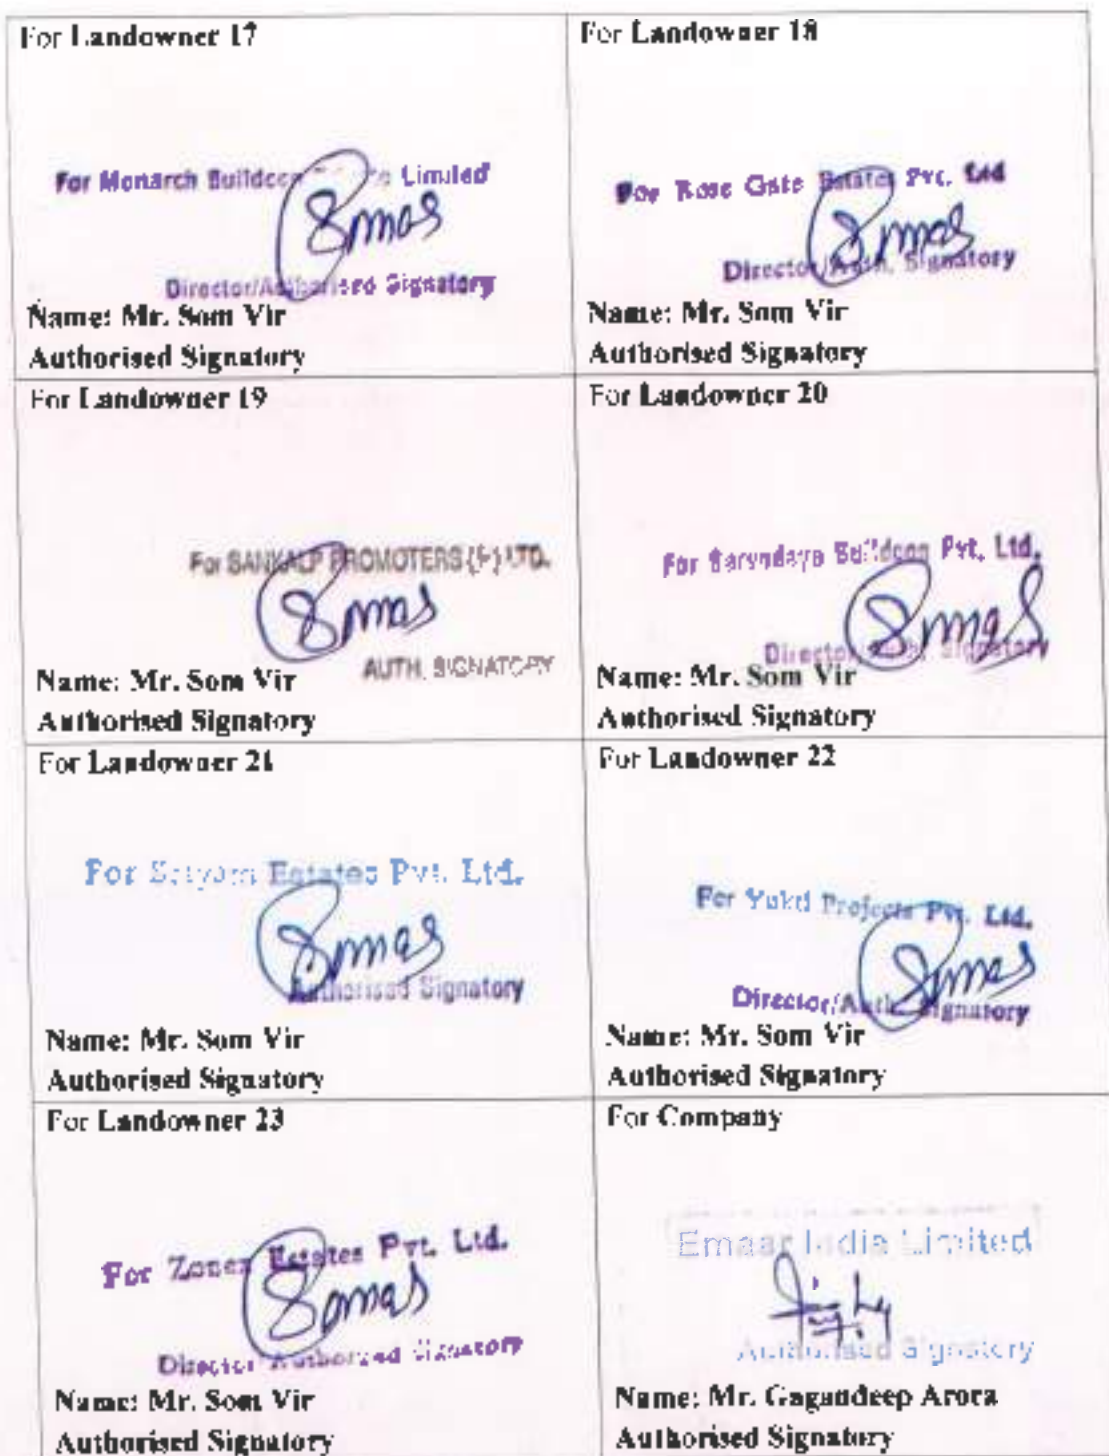 For Landowner 17
For Monarch Buildcon Limited
Director/Authorised Signatory
Name: Mr. Som Vir
Authorised Signatory
For Landowner 18
For Rose Gate Estates Pvt. Ltd
Director/Auth. Signatory
Name: Mr. Som Vir
Authorised Signatory
For Landowner 19
For SANKALP PROMOTERS (P) LTD.
AUTH. SIGNATORY
Name: Mr. Som Vir
Authorised Signatory
For Landowner 20
For Buildcon Pvt. Ltd.
Director/Auth. Signatory
Name: Mr. Som Vir
Authorised Signatory
For Landowner 21
For Estates Pvt. Ltd.
Authorised Signatory
Name: Mr. Som Vir
Authorised Signatory
For Landowner 22
For Yukti Projects Pvt. Ltd.
Director/Auth. Signatory
Name: Mr. Som Vir
Authorised Signatory
For Landowner 23
For Zonex Estates Pvt. Ltd.
Director/Authorized Signatory
Name: Mr. Som Vir
Authorised Signatory
For Company
Emaar India Limited
Authorised Signatory
Name: Mr. Gagandeep Arora
Authorised Signatory